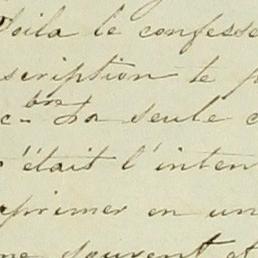 Voila le confesse
scription le p
c - bre La seule c
'était l'inten
primer en un
me souvent et